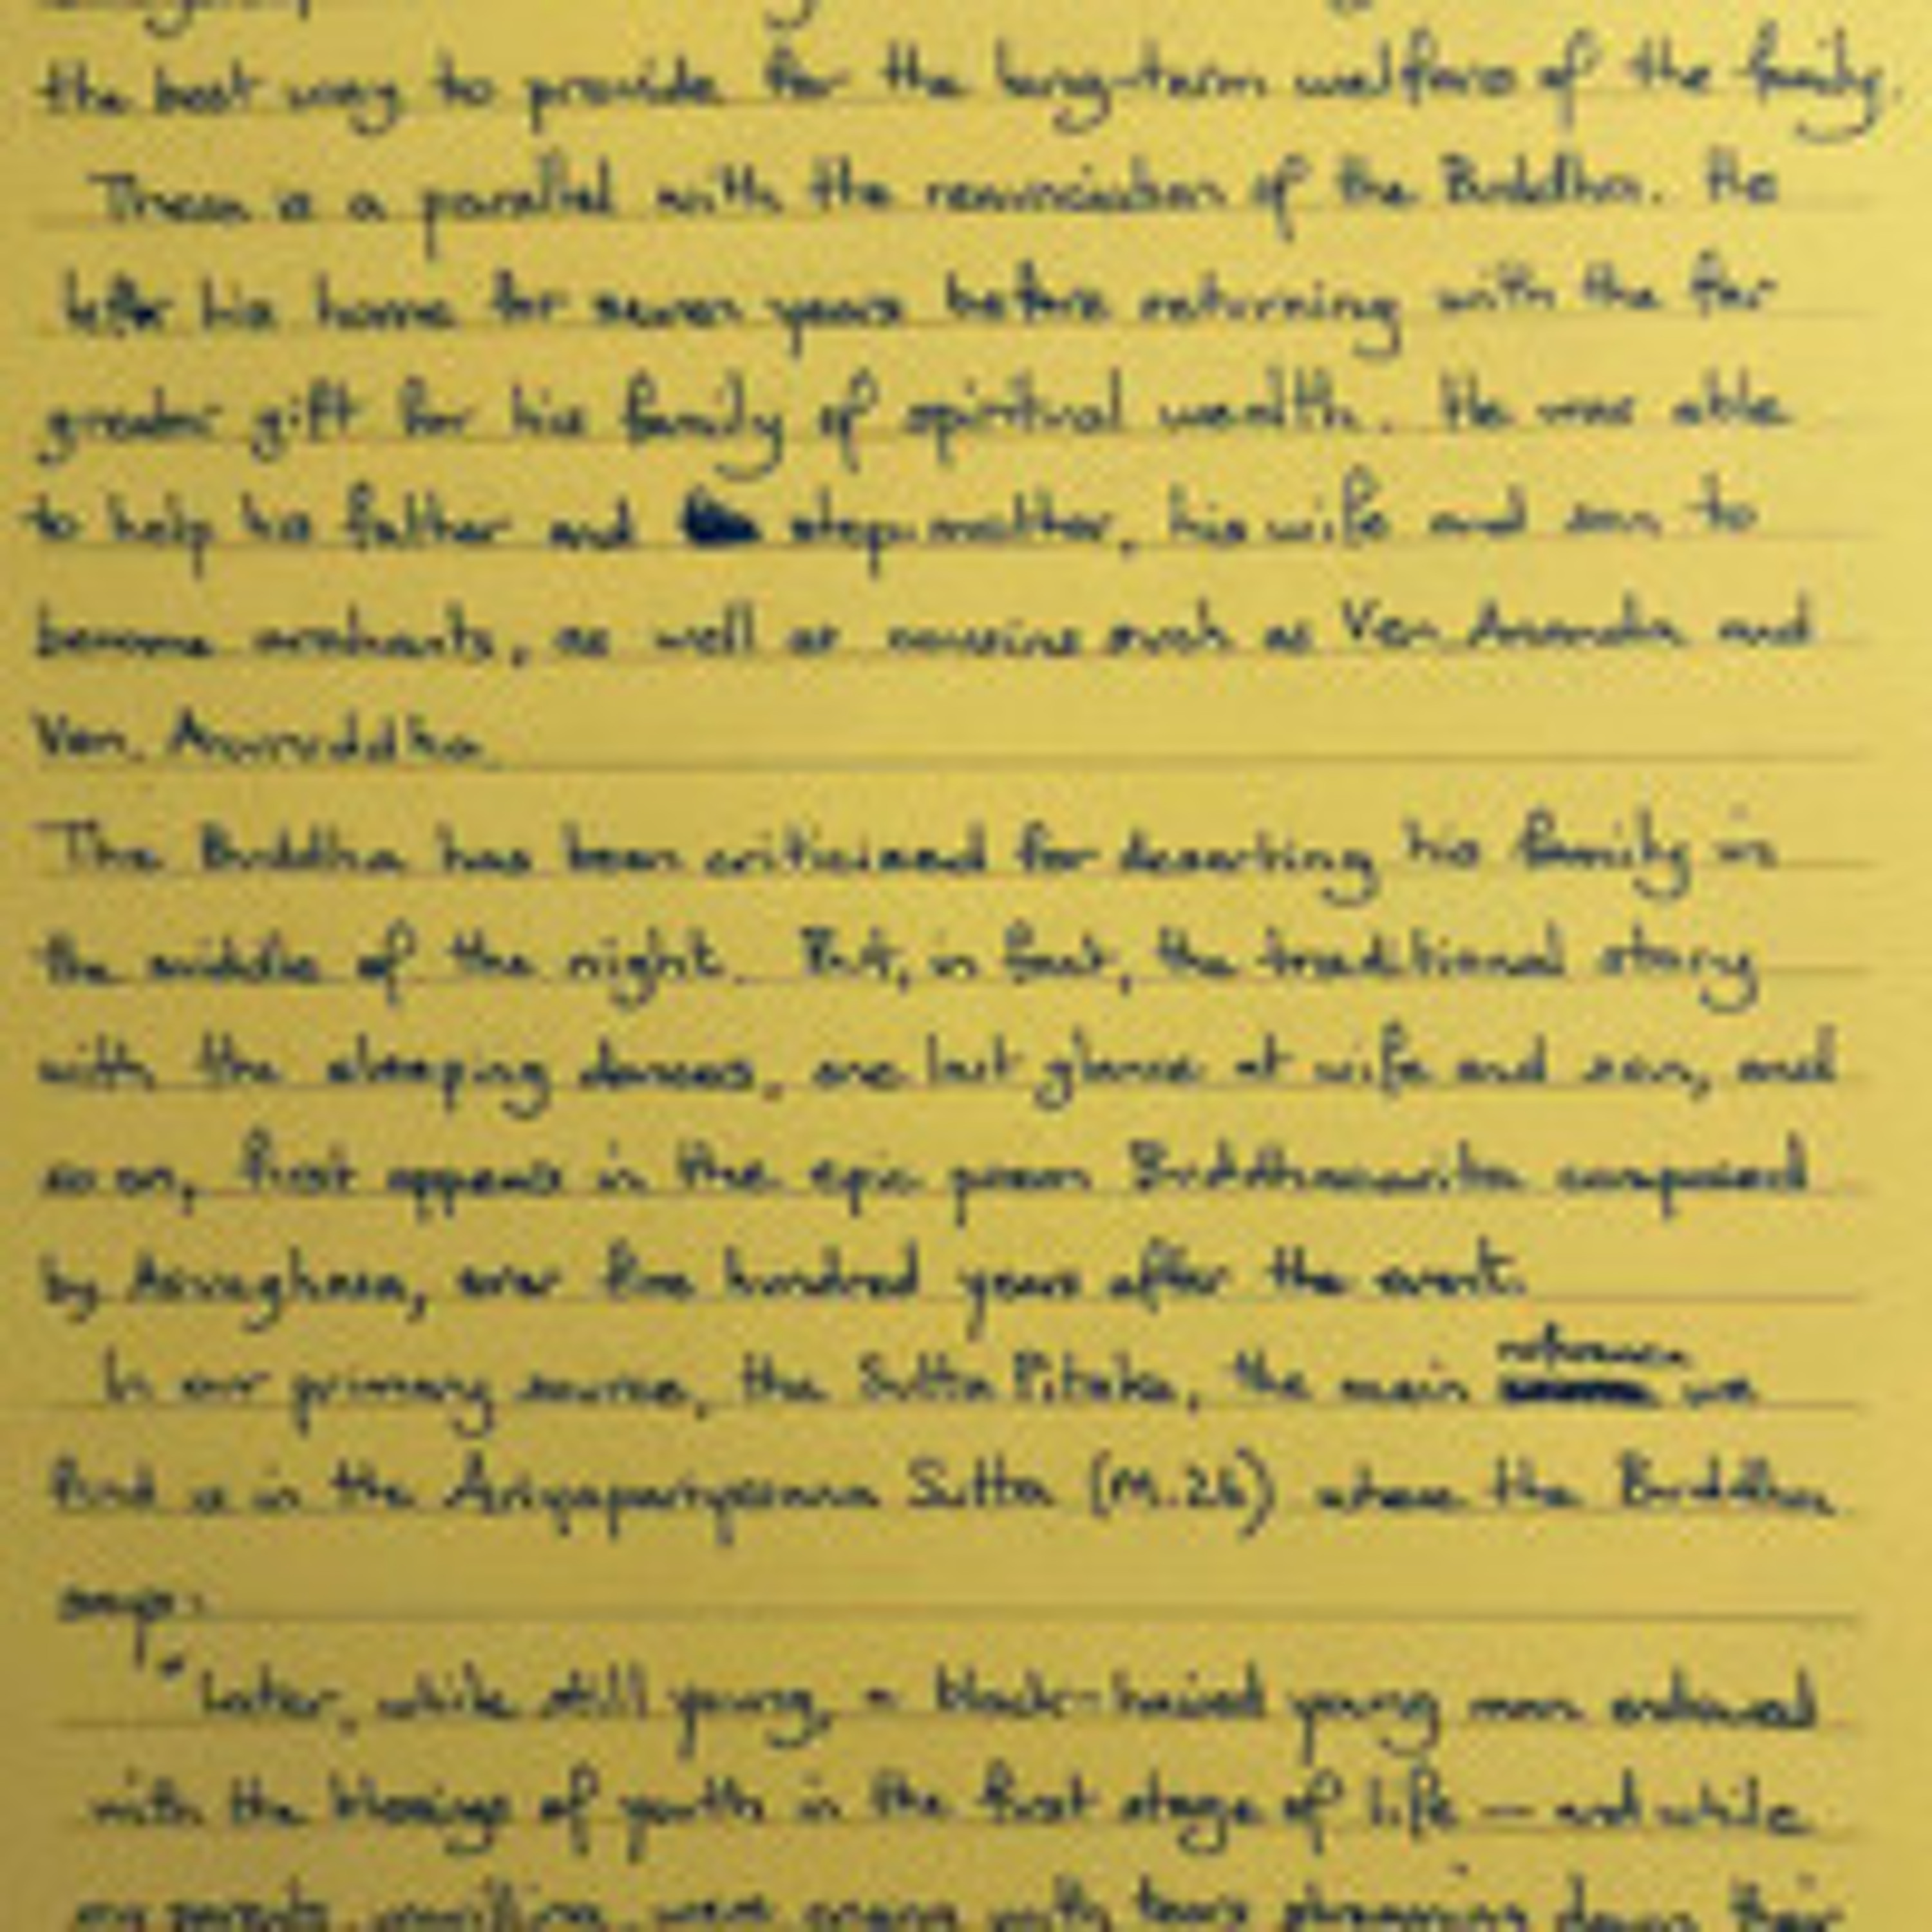 the best way to provide for the long-term welfare of the family.
There is a parallel with the renunciation of the Buddha. He
left his home for seven years before returning with the far
greater gift for his family of spiritual wealth. He was able
to help his father and step-mother, his wife and son to
become arahants, as well as cousins such as Ven Ananda and
Ven. Anuruddha.
The Buddha has been criticised for deserting his family in
the middle of the night. But, in fact, the traditional story
with the sleeping dancers, one last glance at wife and son, and
so on, first appears in the epic poem Buddhacarita composed
by Asvaghosa, over five hundred years after the event.
In our primary source, the Sutta Pitaka, the main reference we
find is in the Ariyapariyesana Sutta (M.26) where the Buddha
says:
"Later, while still young, a black-haired young man endowed
with the blessings of youth in the first stage of life — and while
my parents, unwilling, were crying with tears streaming down their